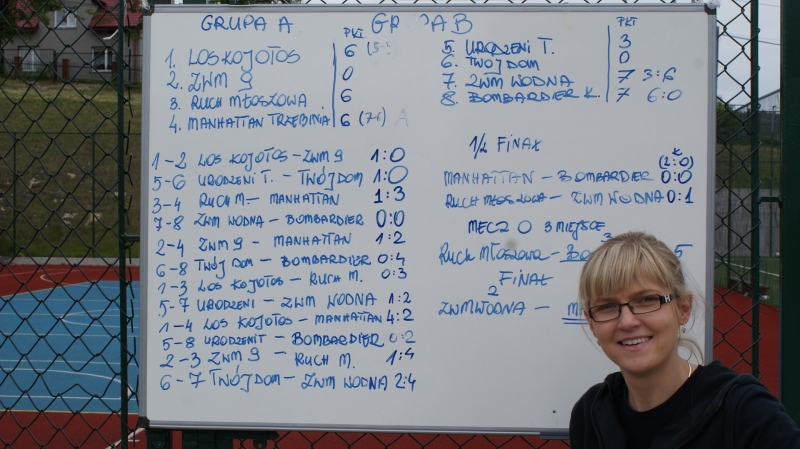 GRUPA A
PKT
1. LOS KOJOTOS 6
2. ZWM 9 0
3. RUCH MŁOSZOWA 6
4. MANHATTAN TRZEBINIA 6
1-2 LOS KOJOTOS - ZWM 9 1:0
5-6 URODZENI T. - TWÓJ DOM 1:0
3-4 RUCH M - MANHATTAN 1:3
7-8 ZWM WODNA - BOMBARDIER 0:0
2-4 ZWM 9 - MANHATTAN 1:2
6-8 TWÓJ DOM - BOMBARDIER 0:4
1-3 LOS KOJOTOS - RUCH M. 0:3
5-7 URODZENI - ZWM WODNA 1:2
1-4 LOS KOJOTOS - MANHATTAN 4:2
5-8 URODZENI T - BOMBARDIER 0:2
2-3 ZWM 9 - RUCH M. 1:4
6-7 TWÓJ DOM - ZWM WODNA 2:4
GR PA B
PKT
5. URODZENI T. 3
6. TWÓJ DOM 0
7. ZWM WODNA 7 3:6
8. BOMBARDIER K. 7 6:0
1/2 FINAŁ
K
(2:0)
MANHATTAN - BOMBARDIER 0:0
RUCH MŁOSZOWA - ZWM WODNA 0:1
MECZ O 3 MIEJSCE
3
RUCH MŁOSZOWA - BO 5
FINAŁ
2
ZWM WODNA - M